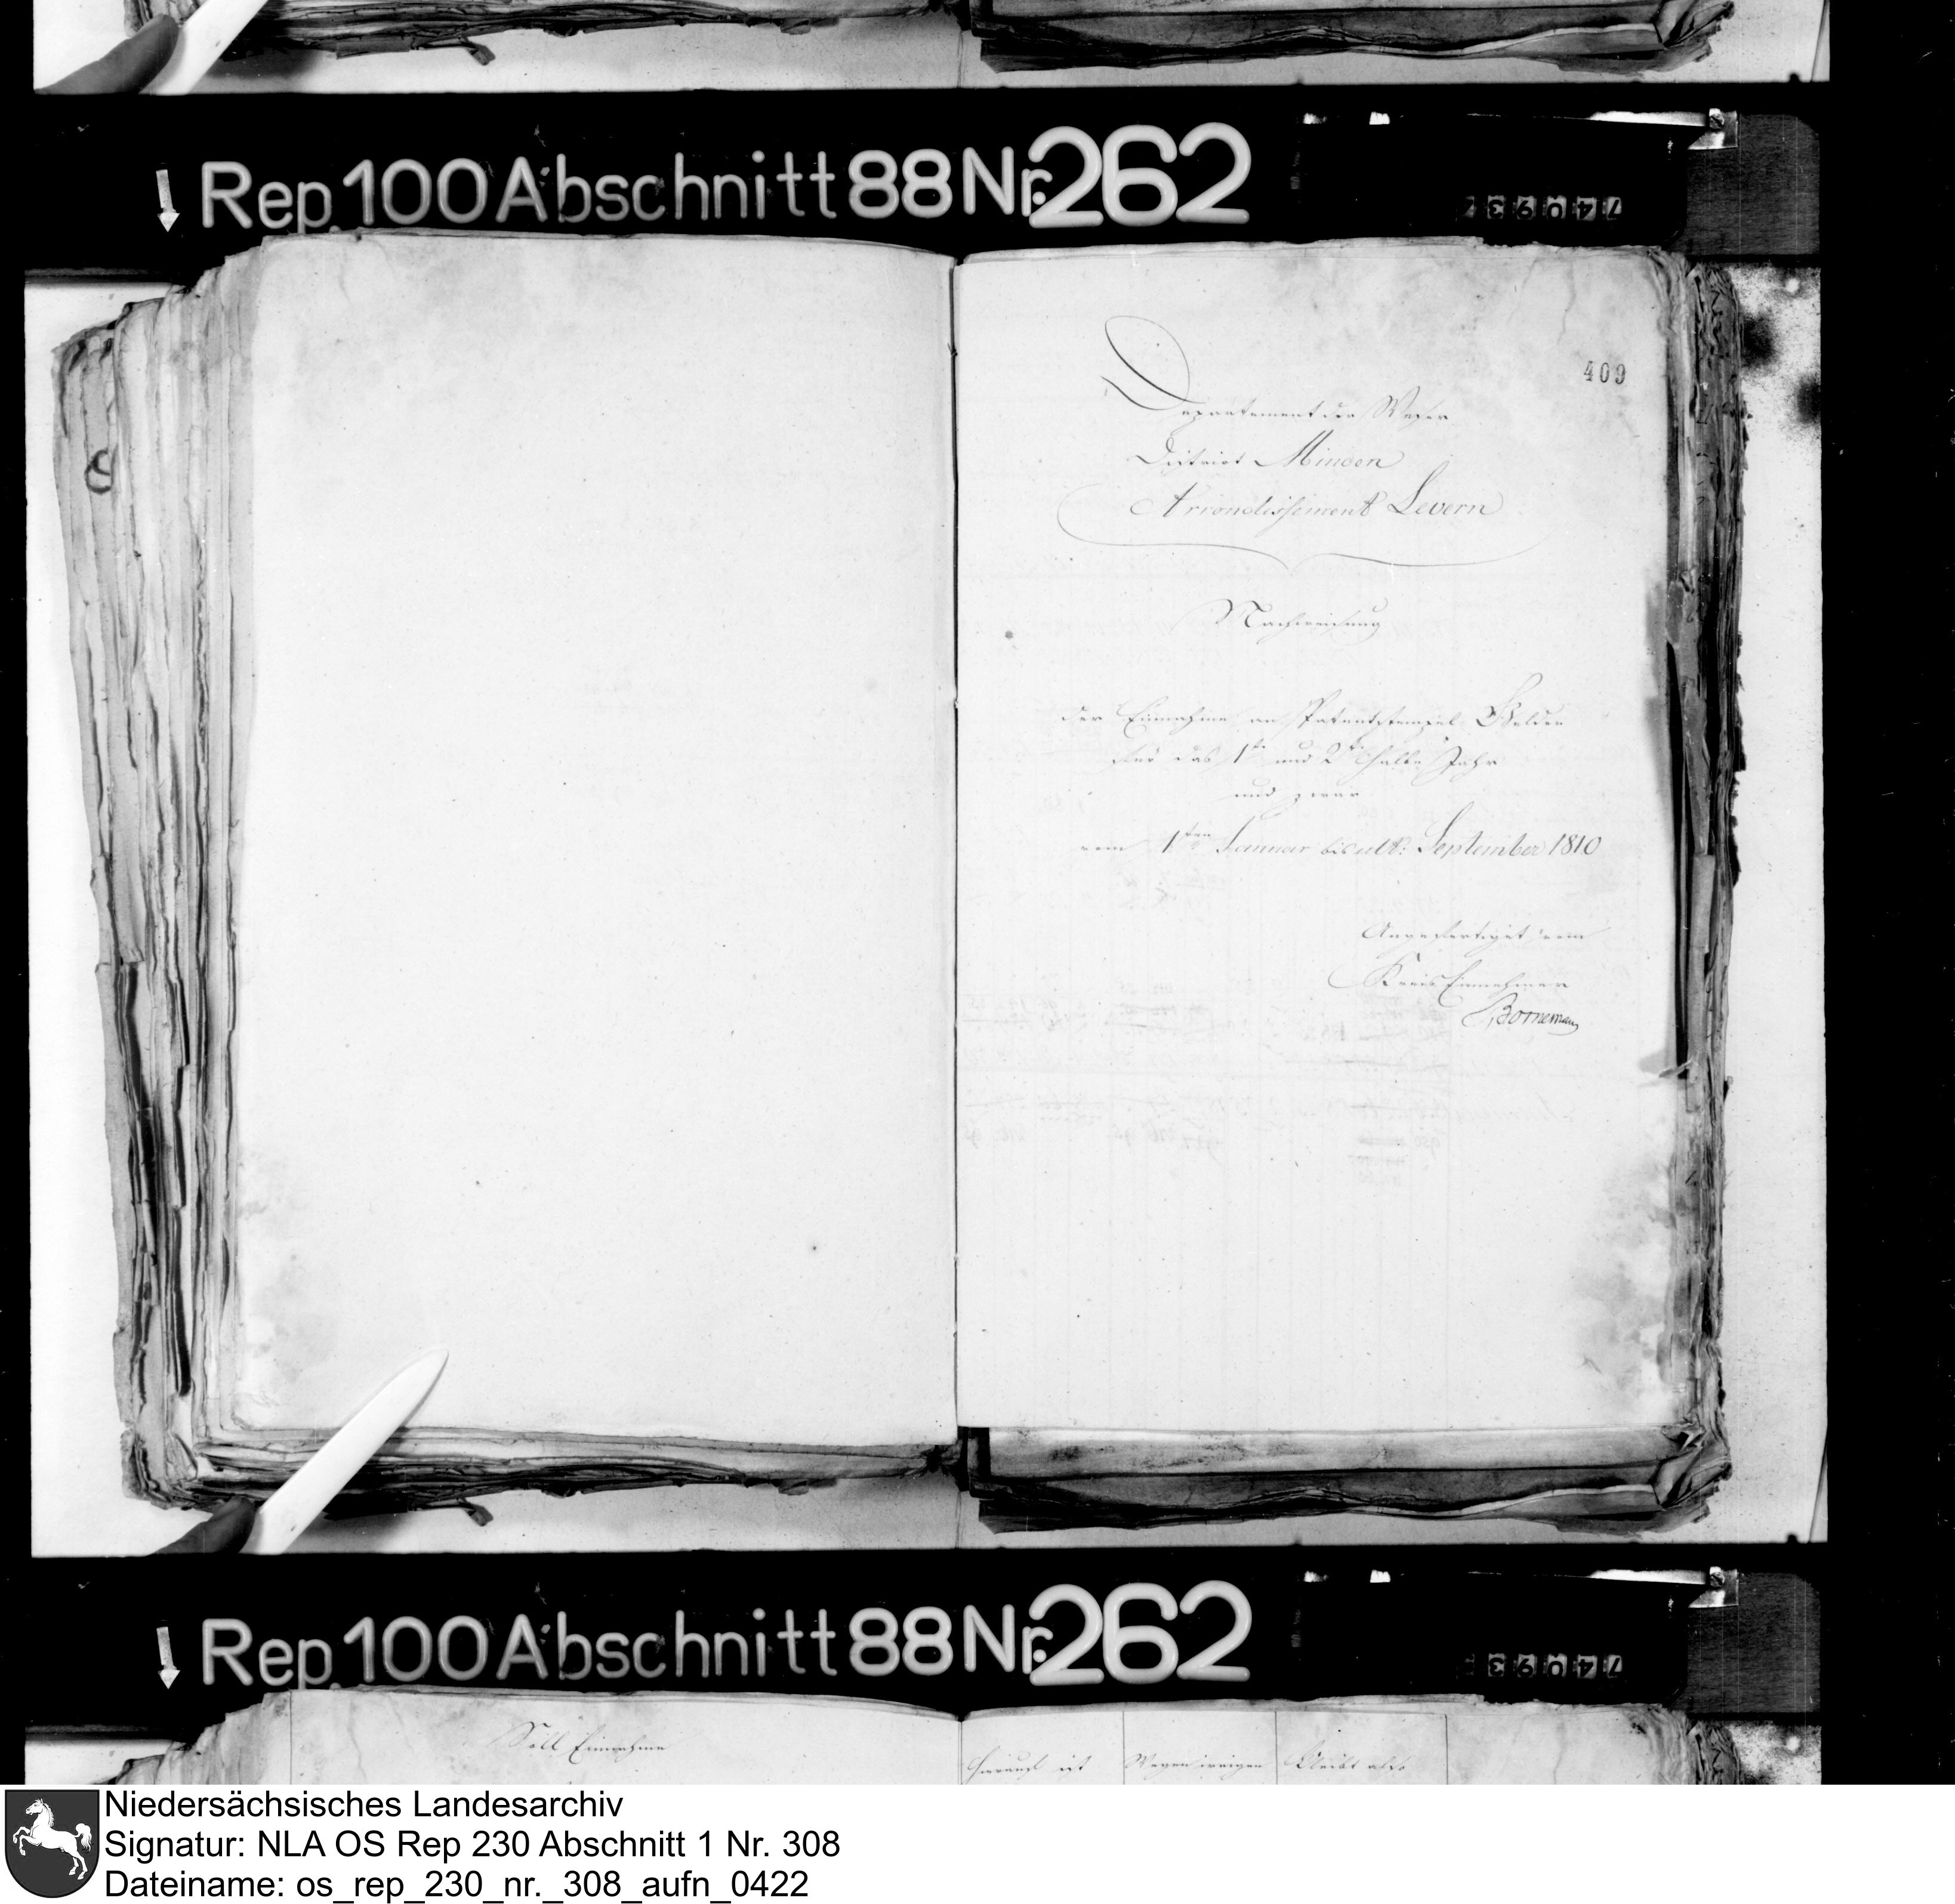 Rep. 100 Abschnitt 88 Nr. 262
409
Departement der Weser
District Minden
Arrondissement Levern
Nachweisung
der Einnahme an Patentstempel Gelder
für das 1te und 2te halbe Jahr
und zwar
vom 1sten Januar bis ult: September 1810
Angefertiget vom
Kreis Einnehmer
Borneman
Rep. 100 Abschnitt 88 Nr. 262
Soll Einnahme
Hierauf ist
Wegen irrigen
Bleibt also
Niedersächsisches Landesarchiv
Signatur: NLA OS Rep 230 Abschnitt 1 Nr. 308
Dateiname: os_rep_230_nr._308_aufn_0422